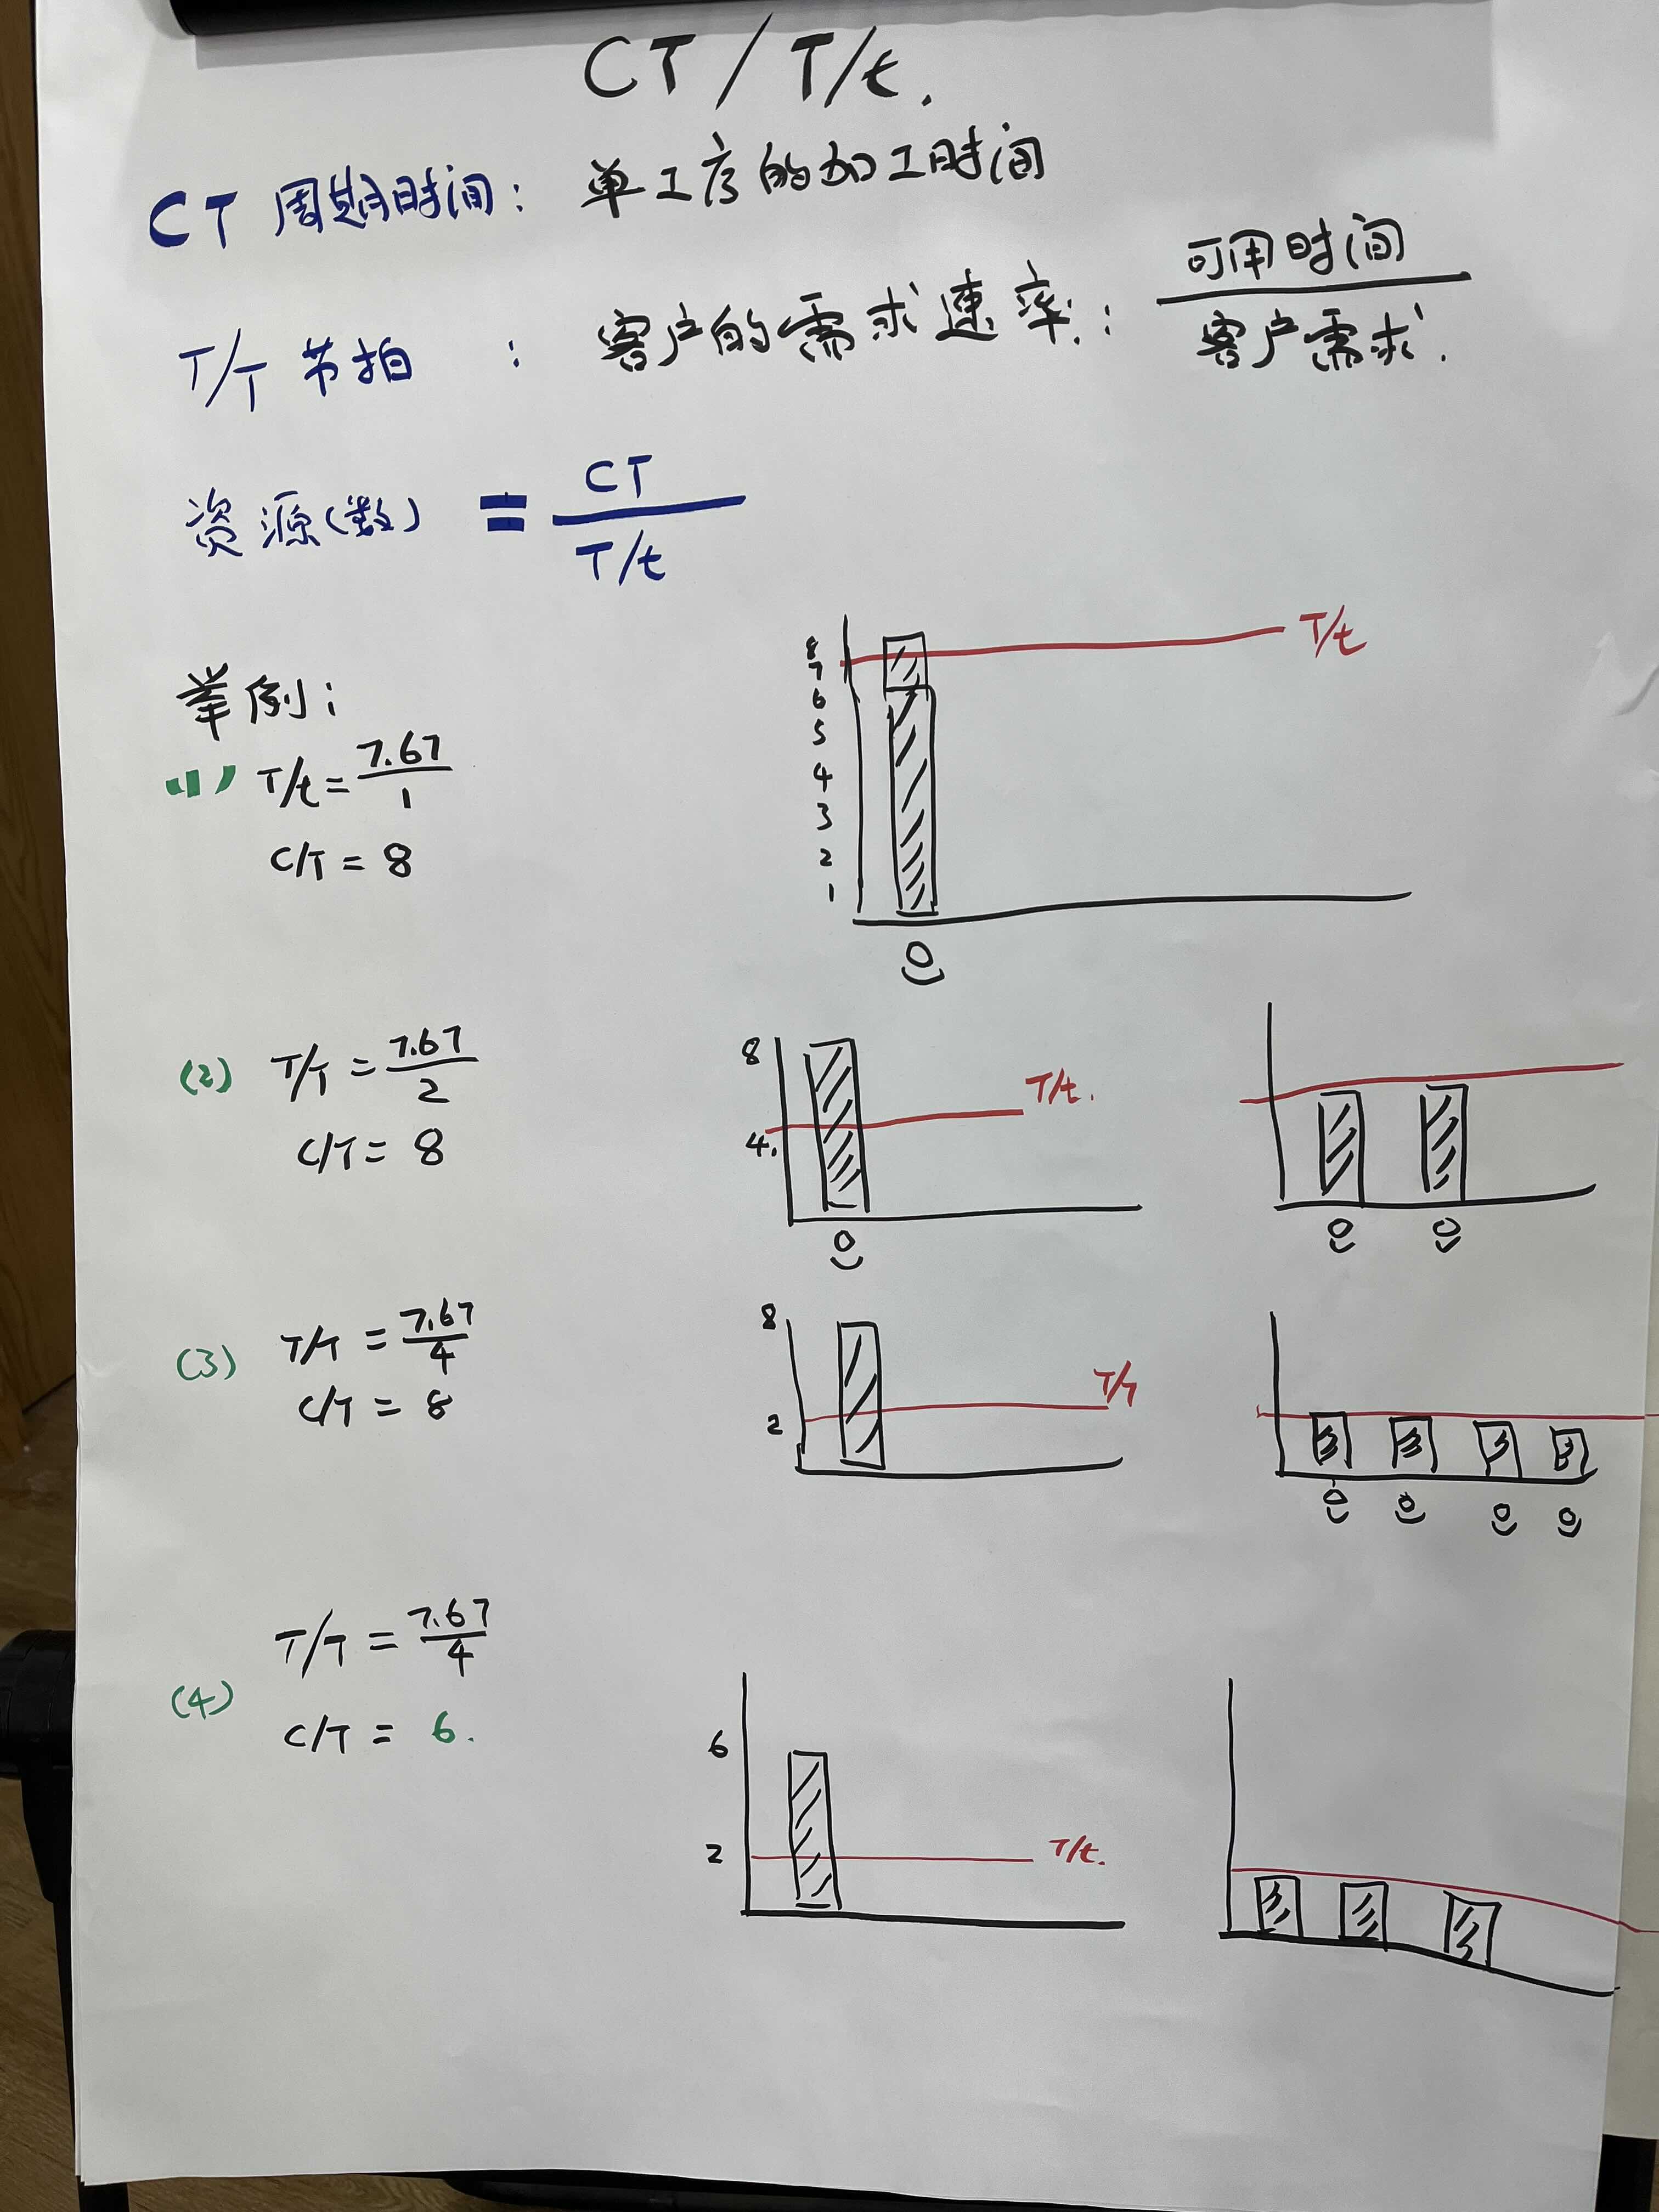 CT / T/t.
CT 周期时间: 单工序的加工时间
T/T 节拍 : 客户的需求速率: 可用时间
客户需求.
资源(数) = CT
T/t
举例:
(1) T/t = 7.67
1
C/T = 8
8
7
6
5
4
3
2
1
T/t
(2) T/T = 7.67
2
C/T = 8
8
4.
T/t.
(3) T/T = 7.67
4
C/T = 8
8
2
T/T
(4) T/T = 7.67
4
C/T = 6.
6
2
T/t.